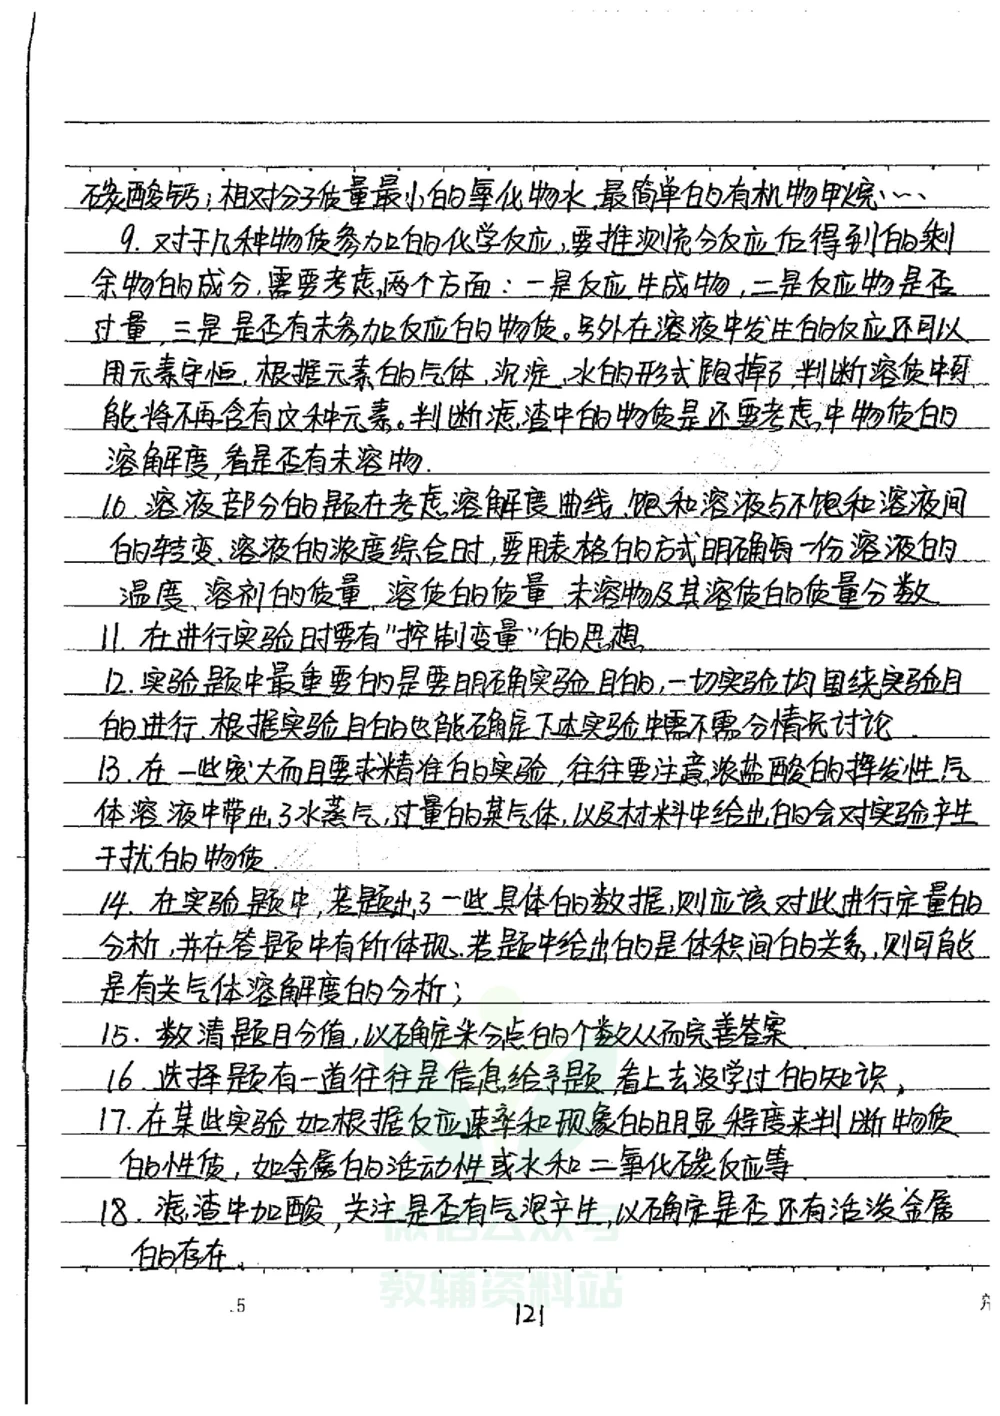 碳酸钙；相对分子质量最小的氧化物水、最简单的有机物甲烷、……
9. 对于几种物质参加的化学反应，要推测充分反应后得到的剩
余物的成分，需要考虑两个方面：一是反应生成物，二是反应物是否
过量，三是是否有未参加反应的物质。另外在溶液中发生的反应还可以
用元素守恒，根据元素的气体、沉淀、水的形式跑掉了，判断溶质中可
能将不再含有这种元素。判断滤渣中的物质是还要考虑中物质的
溶解度，看是否有未溶物.
10. 溶液部分的题在考虑溶解度曲线、饱和溶液与不饱和溶液间
的转变、溶液的浓度综合时，要用表格的方式明确每一份溶液的
温度、溶剂的质量、溶质的质量、未溶物及其溶质的质量分数
11. 在进行实验时要有“控制变量”的思想
12. 实验题中最重要的是要明确实验目的，一切实验均围绕实验目
的进行，根据实验目的也能确定下来实验中需不需分情况讨论.
13. 在一些宠大而且要求精准的实验，往往要注意浓盐酸的挥发性气
体溶液中带出了水蒸气，过量的某气体，以及材料中给出的会对实验产生
干扰的物质
14. 在实验题中，若题出了一些具体的数据，则应该对此进行定量的
分析，并在答题中有所体现、若题中给出的是体积间的关系，则可能
是有关气体溶解度的分析；
15. 数清题目分值，以确定采分点的个数从而完善答案
16. 选择题有一道往往是信息给予题，看上去没学过的知识，
17. 在某些实验如根据反应速率和现象的明显程度来判断物质
的性质，如金属的活动性或水和二氧化碳反应等
18. 滤渣中加酸，关注是否有气泡产生，以确定是否还有活泼金属
的存在、
微信公众号
教辅资料站
.5
121